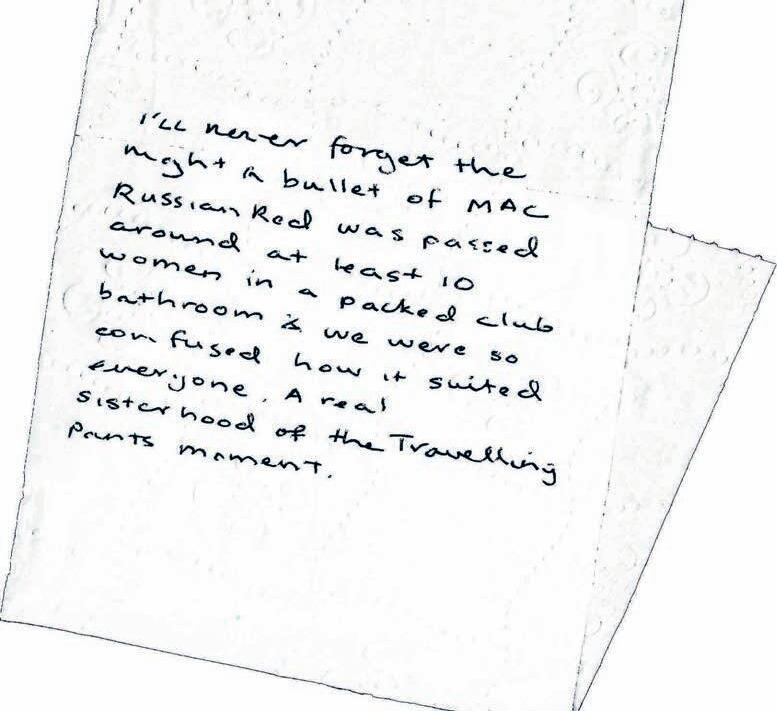 I'LL never forget the
night a bullet of MAC
Russian Red was passed
around at least 10
women in a packed club
bathroom & we were so
confused how it suited
everyone. A real
sisterhood of the Travelling
Pants moment.